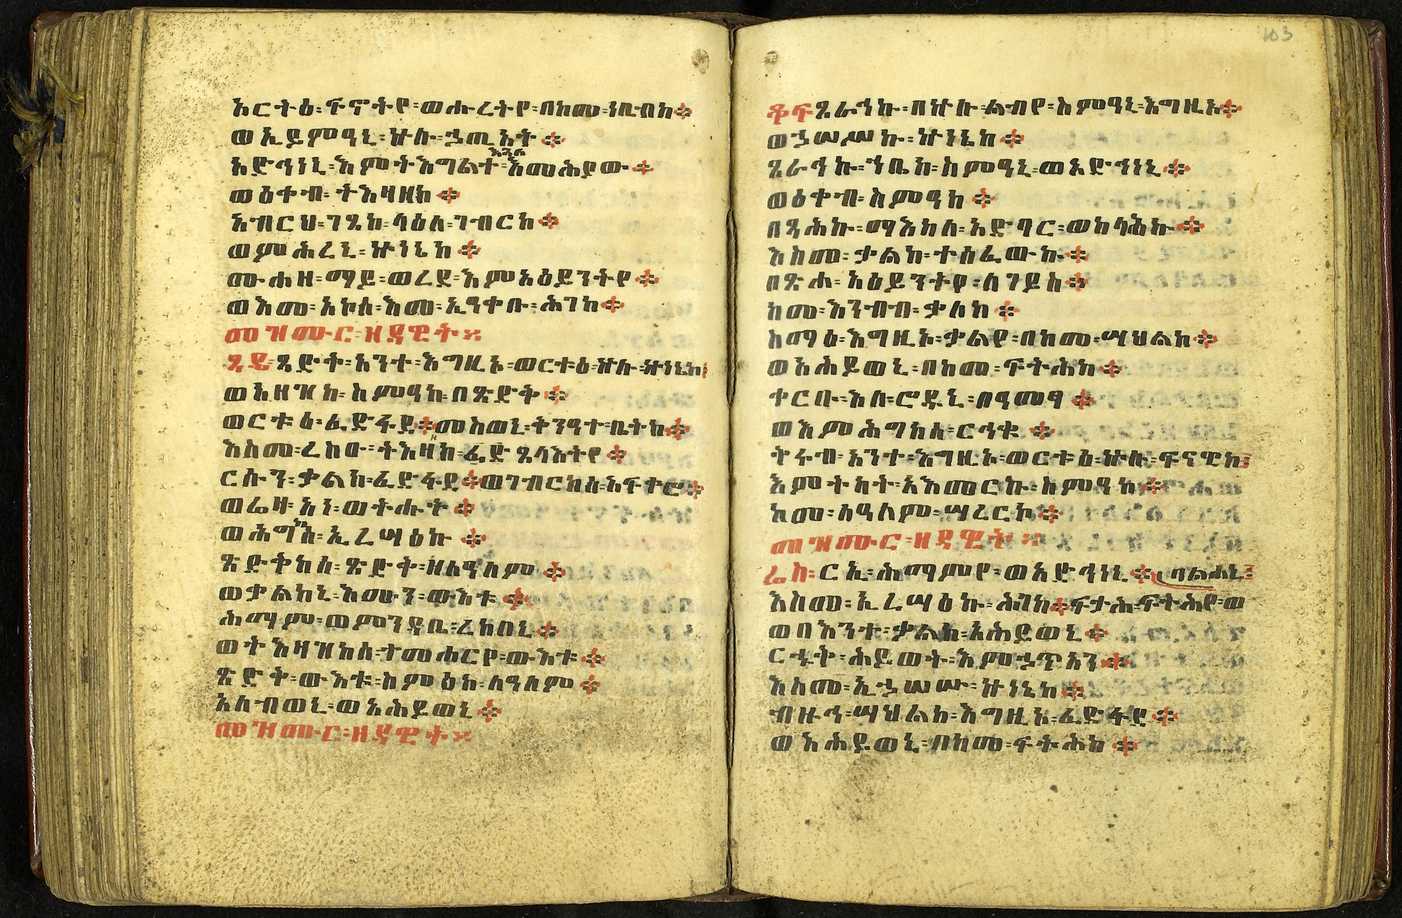 አርትዕ፡ ፍኖትየ፡ ወሑረትየ፡ በከመ፡ ነቢብከ፨
ወኢይምዓኒ፡ ኵሉ፡ ኃጢአት፨
እጓለ
አድኅነኒ፡ እምትእግልተ፡ እመሕያው፨
ወዕቀብ፡ ትእዛዘከ፨
አብርህ፡ ገጸከ፡ ላዕለ፡ ገብርከ፨
ወምሕረኒ፡ ኵነኔከ፨
ሙሐዘ፡ ማይ፡ ወረደ፡ እምአዕይንትየ፨
ወእመ፡ አኮሰ፡ እመ፡ ኢዓቀቡ፡ ሕገከ፨
መዝሙር፡ ዘዳዊት፡
ጻዴ፡ ጻድቅ፡ አንተ፡ እግዚኦ፡ ወርቱዕ፡ ኵሉ፡ ኵነኔከ፡
ወአዘዝከ፡ ስምዓከ፡ በጽድቅ፨
ወርቱዕ፡ ፈድፋደ፨ መስወኒ፡ ቅንዓተ፡ ቤትከ፨
እስመ፡ ረስዑ፡ ትእዛዘከ፡ ፈድ ጸላእትየ፨
ርሱን፡ ቃልከ፡ ፈድፋደ፨ ወገብርከሰ፡ አፍቀሮ፨
ወሬዛ፡ አነ፡ ወትሑት፨
ወሕግከሰ፡ ኢረሣዕኩ፨
ጽድቅከሰ፡ ጽድቅ፡ ዘለዓለም፨
ወቃልከኒ፡ እሙን፡ ውእቱ፨
ሕማም፡ ወምንዳቤ፡ ረከበኒ፨
ወትእዛዝከሰ፡ ተመሐርየ፡ ውእቱ፨
ጽድቅ፡ ውእቱ፡ ስምዕከ፡ ለዓለም፨
አለብወኒ፡ ወአሕይወኒ፨
መዝሙር፡ ዘዳዊት፡
103
ቆፍ ጸራኅኩ፡ በኵሉ፡ ልብየ፡ ስምዓኒ፡ እግዚኦ፨
ወኃሠሥኩ፡ ኵነኔከ፨
ጸራኅኩ፡ ኀቤከ፡ ስምዓኒ፡ ወአድኅነኒ፨
ወዕቀብ፡ ስምዓከ፨
በጻሕኩ፡ ማእከለ፡ አድባር፡ ወከላሕኩ፨
እስመ፡ ቃልከ፡ ተሰፈውኩ፨
በጽሐ፡ አዕይንትየ፡ ለገይስ፨
ከመ፡ እንብብ፡ ቃለከ፨
ስማዕ፡ እግዚኦ፡ ቃልየ፡ በከመ፡ ሣህልከ፨
ወአሕይወኒ፡ በከመ፡ ፍትሕከ፨
ቀርቡ፡ እለ፡ ሮዱኒ፡ በዓመፃ፨
ወእምሕግከሰ፡ ርኅቁ፨
ቅሩብ፡ አንተ፡ እግዚኦ፡ ወርቱዕ፡ ኵሉ፡ ፍናዊከ፡
እምትካት፡ አእመርኩ፡ ስምዓከ፨
ከመ፡ ለዓለም፡ ሣረርኮ፨
መዝሙር፡ ዘዳዊት፡
ሬስ፡ ርኢ፡ ሕማምየ፡ ወአድኅነኒ፨ ባልሐኒ፡
እስመ፡ ኢረሣዕኩ፡ ሕገከ፨ ፍታሕ፡ ፍትሕየ፡ ወ
ወበእንተ፡ ቃልከ፡ አሕይወኒ፨
ርኁቅ፡ ሕይወት፡ እምኃጥአን፨
እስመ፡ ኢኃሠሡ፡ ኵነኔከ፨
ብዙኅ፡ ሣህልከ፡ እግዚኦ፡ ፈድፋደ፨
ወአሕይወኒ፡ በከመ፡ ፍትሕከ፨